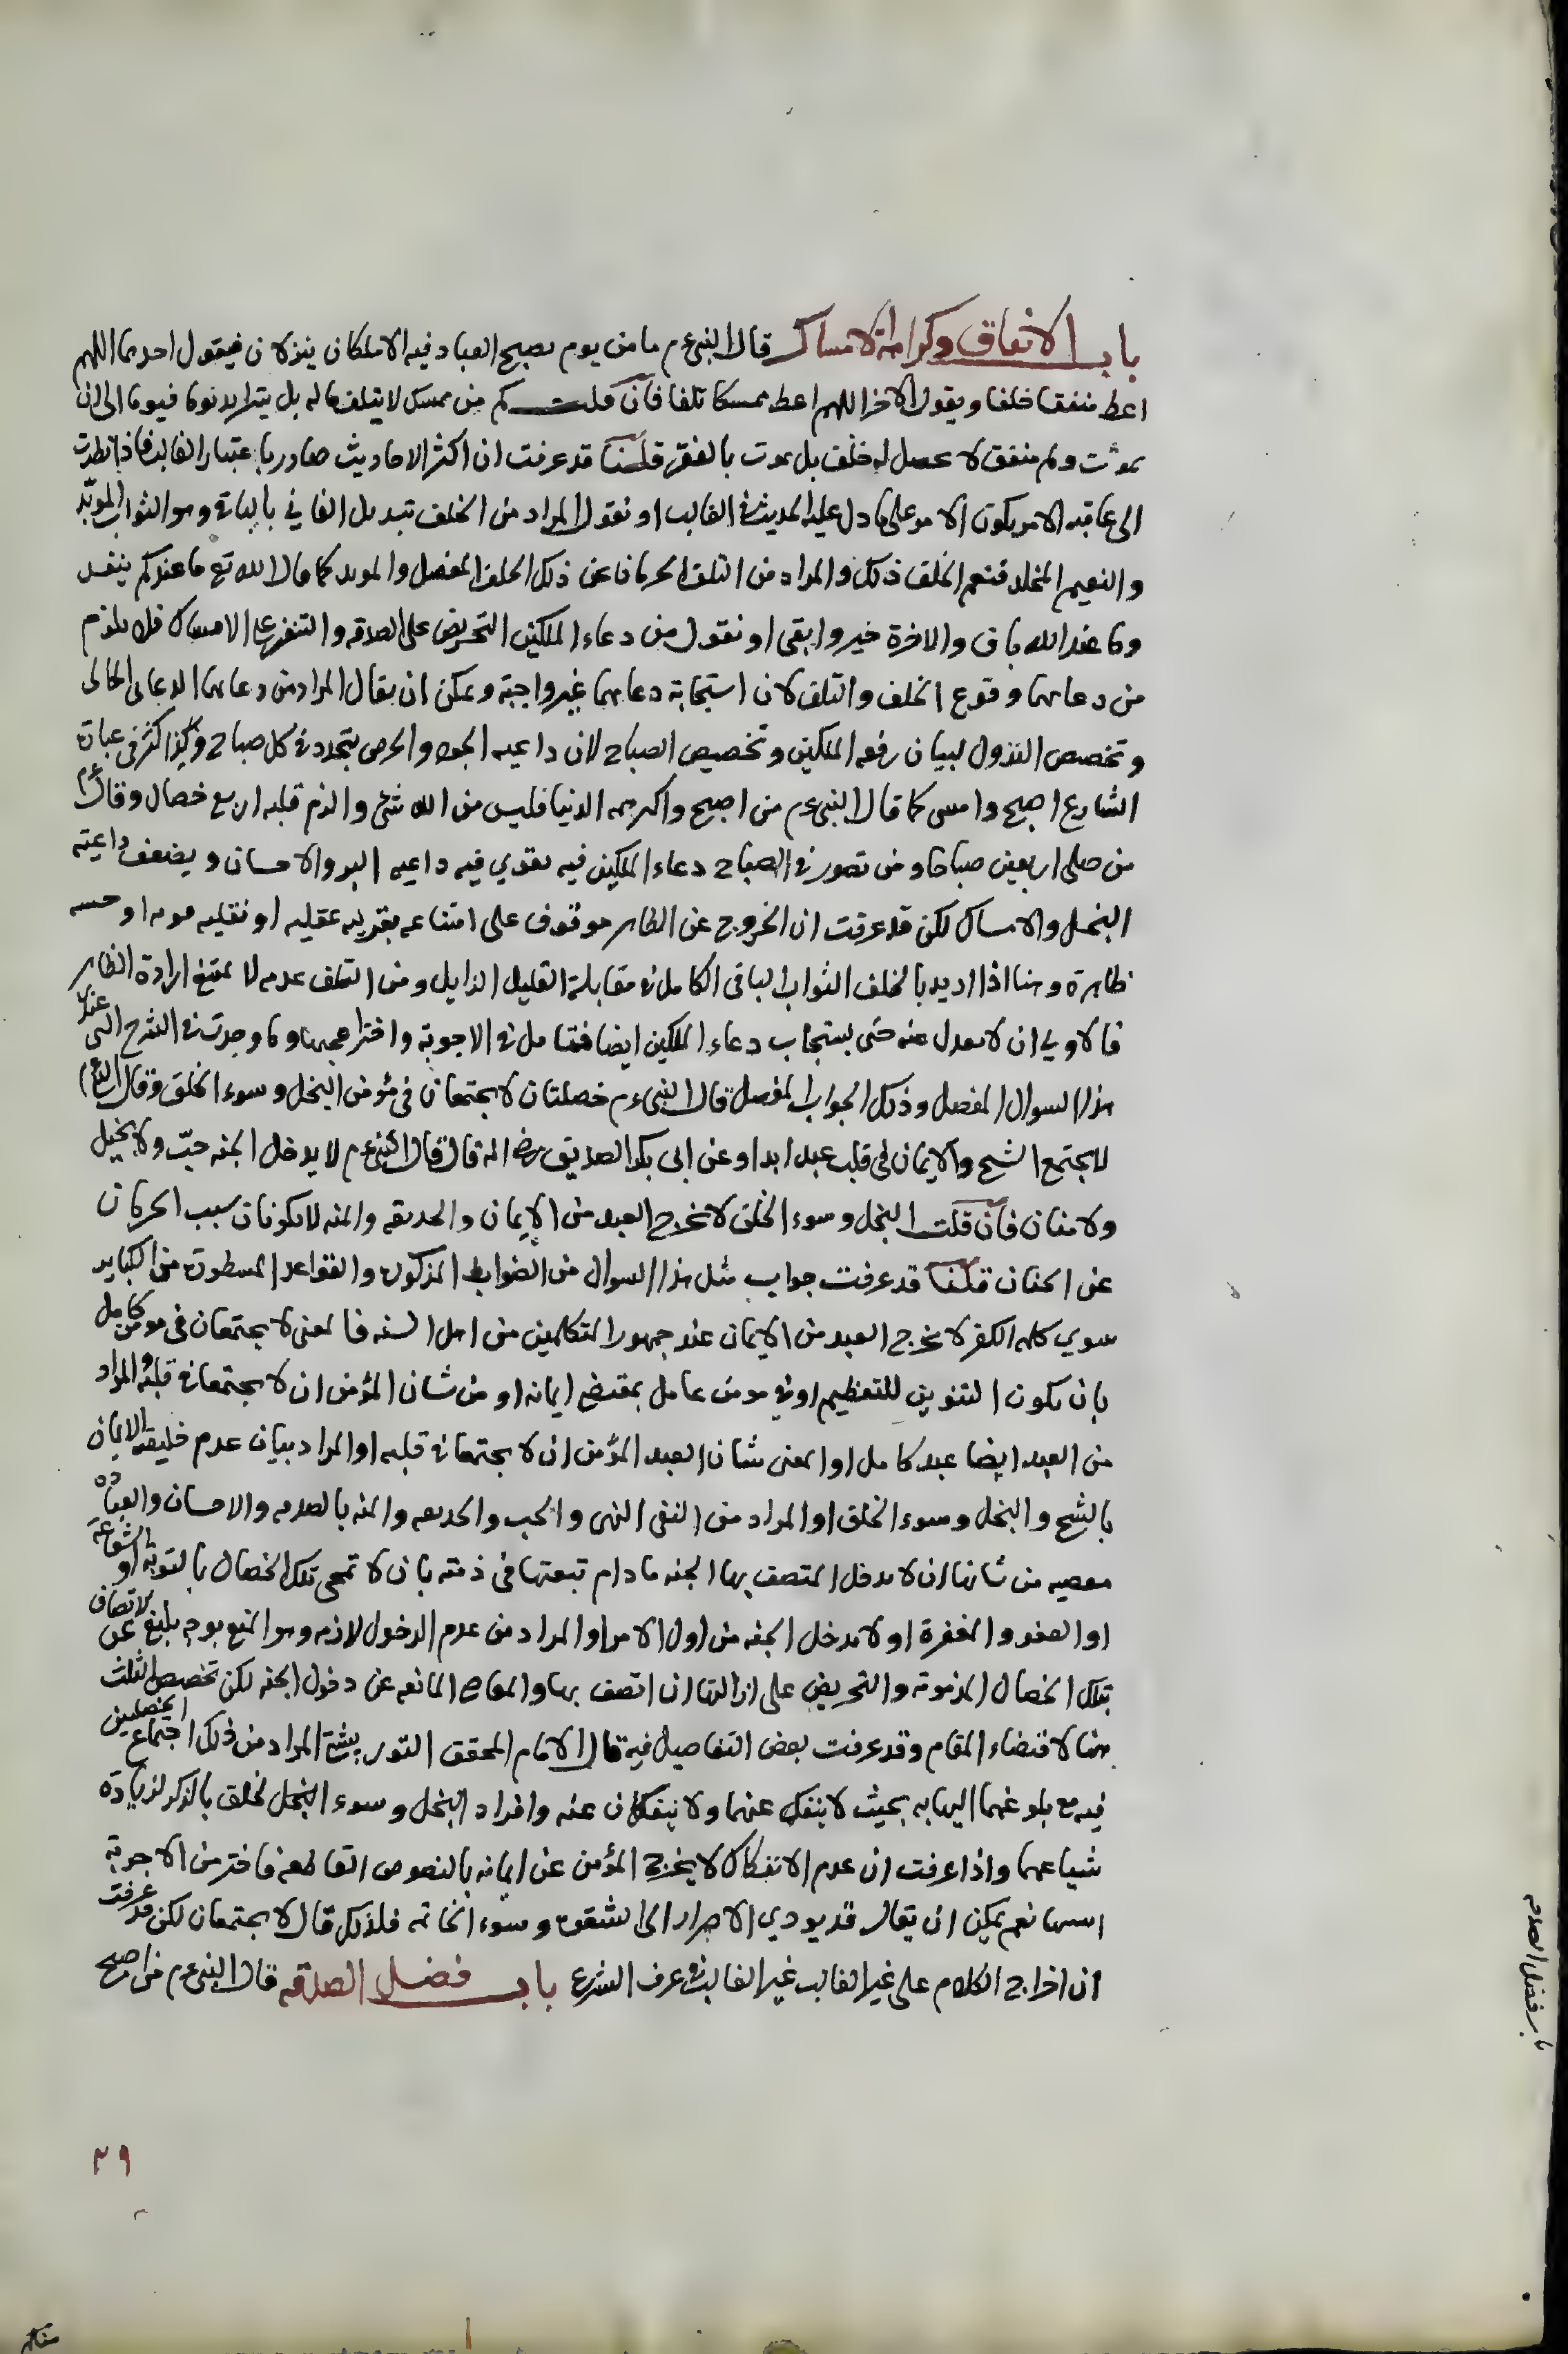 باب الانفاق وكراهة الامساك قال النبى عم ما من يوم يصبح العباد فيه الا ملكان ينزلان فيقول احدهما اللهم
اعط منفقا خلفا ويقول الاخر اللهم اعط ممسكا تلفا فان قلت كم من ممسك لا يتلف ماله بل يتزايد نوما فيوما الى ان
يموت وكم منفق لا يحصل له خلف بل يموت بالفقر قلنا قد عرفت ان اكثر الاحاديث صادر باعتبار الغالب فاذا نظرت
الى عاقبه الامر يكون الامر على ما دل عليه الحديث فى الغالب او نقول المراد من الخلف تبديل الفانى بالباقى وهو الثواب الموبّد
والنعيم المخلد فنعم الخلف ذلك والمراد من التلف الحرمان عن ذلك الخلف المفصل والموبد كما قال الله تع ما عندكم ينفد
وما عند الله باق والاخرة خير وابقى او نقول من دعاء الملكين التحريض على الصدقه والتنفير عن الامساك فلا يلزم
من دعائهما وقوع الخلف والتلف لان استجابة دعائهما غير واجبة ويمكن ان يقال المراد من دعائهما الدعا فى الحال
وتخصيص النزول لبيان رفعه الملكين وتخصيص الصباح لان داعيه الجود والحرص يتجدد فى كل صباح ولذا كثر فى عبارة
الشارع اصبح وامسى كما قال النبى عم من اصبح واكبر همه الدنيا فليس من الله فى شئ والزم قلبه اربع خصال وقال عم
من صلى اربعين صباحا ومن تصور فى الصباح دعاء الملكين فيه يقوي فيه داعيه البر والاحسان ويضعف داعيته
البخل والامساك لكن قد عرفت ان الخروج عن الظاهر موقوف على امتناعه بقرينه عقليه او نقليه او حسيه
ظاهرة وهنا اذا اريد بالخلف الثواب الباقى الكامل فى مقابلة القليل الزايل ومن التلف عدمه لا يمتنع ارادة الظاهر
فالاولى ان لا يعدل عنه حتى يستجاب دعاء الملكين ايضا فتامل فى الاجوبة واختر احسنها وما وجدت فى الشرح التى عندنا
هذا السوال المفصل وذلك الجواب المفصل قال النبى عم خصلتان لا يجتمعان فى مؤمن البخل وسوء الخلق وقال النبى عم
لا يجتمع الشح والايمان فى قلب عبد ابدا وعن ابى بكر الصديق رضى انه قال قال النبى عم لا يدخل الجنه خبّ ولا بخيل
ولا منان فان قلت البخل وسوء الخلق لا يخرج العبد من الايمان والخديعه والمنه لا يكونان سبب الحرمان
عن الجنان قلنا قد عرفت جواب مثل هذا السوال من الضوابط المذكورة والقواعد المسطورة من الكباير
سوي كلمه الكفر لا يخرج العبد من الايمان عند جمهور المتكلمين من اهل السنه فالمعنى لا يجتمعان فى مومن كامل
بان يكون التنوين للتعظيم او فى مومن عامل بمقتضى ايمانه او من شان المؤمن ان لا يجتمعا فى قلبه والمراد
من العبد ايضا عبد كامل او المعنى شان العبد المؤمن ان لا يجتمعا فى قلبه او المراد بيان عدم خليقه الايمان
بالشح والبخل وسوء الخلق او المراد من النفى النهى والخب والخديعه والمنه بالصدقه والاحسان والعباده
معصيه من شانها ان لا يدخل المتصف بها الجنه ما دام تبعتها فى ذمته بان لا تمحى تلك الخصال بالتوبة او الشفاعة
او العفو والمغفرة او لا يدخل الجنه من اول الامر او المراد من عدم الدخول لازمه وهو المنع بوجه بليغ عن الاتصاف
بتلك الخصال المذمومة والتحريض على ازالتها ان اتصف بها والمعاصى المانعه عن دخول الجنه لكن تخصيص الثلث
هنا لاقتضاء المقام وقد عرفت بعض التفاصيل فيه قال الامام المحقق التوربشتى المراد من ذلك اجتماع الخصلتين
فيه مع بلوغهما النهايه بحيث لا ينفك عنهما ولا ينفكان عنه وافراد البخل وسوء الخلق بالذكر لزيادة
شياعهما واذا عرفت ان عدم الانفكاك لا يخرج المؤمن عن ايمانه بالنصوص القاطعه فاختر من الاجوبة
احسنها نعم يمكن ان يقال قد يودي الاصرار الى الشقوة وسوء الخاتمه فلذلك قال لا يجتمعان لكن قد عرفت
ان اخراج الكلام على غير الغالب غير الغالب فى عرف الشرع باب فضل الصدقه قال النبى عم من اصبح
باب فضل الصدقه
٢٩